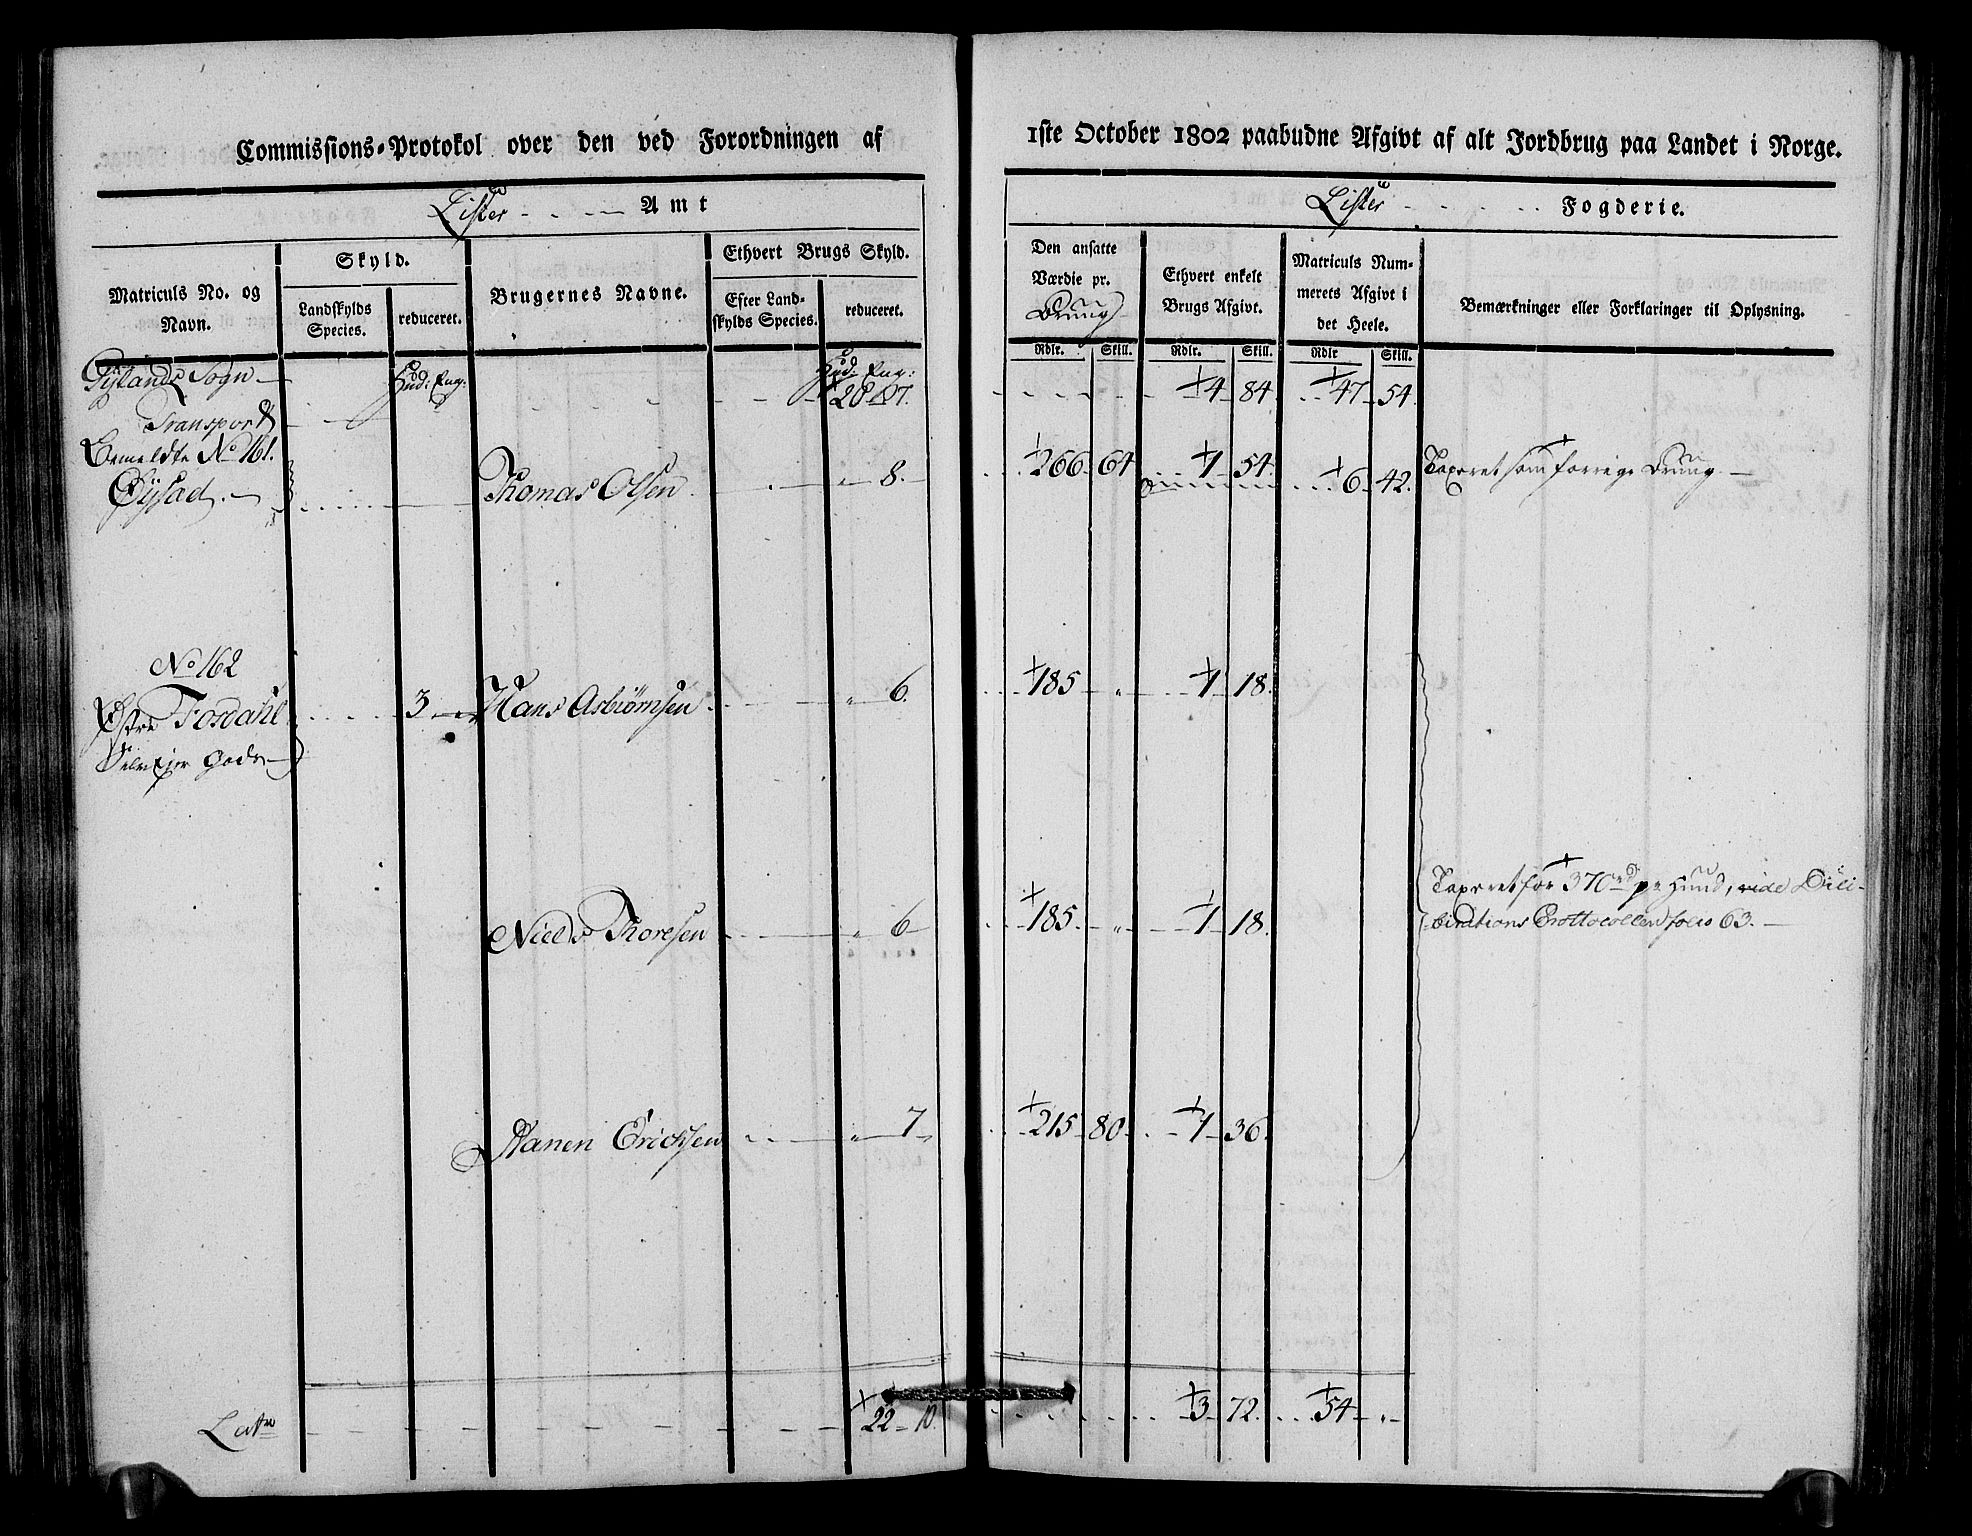 Commissions-Protokol over den ved Forordningen af
1ste October 1802 paabudne Afgivt af alt Jordbrug paa Landet i Norge.
Lister Amt
Lister Fogderie.
Matriculs No. og Navn.
Skyld.
Landskylds Species.
reduceret.
Brugernes Navne.
Ethvert Brugs Skyld.
Efter Landskylds Species.
reduceret.
Den ansatte Værdie pr. Brug
Ethvert enkelt Brugs Afgivt.
Matriculs Nummerets Afgivt i det Heele.
Bemærkninger eller Forklaringer til Oplysning.
Rdlr. Skill. Rdlr. Skill. Rdlr Skill.
Gylands Sogn
Hud: Eng: Hud: Eng:
Transport 20 7. 4 84 47 54.
Bemeldte No 161.
Øysad. Thomas Olsen 8. 266 64 1 54 6 42. Taxeret som forrige Brug.
No 162
Østre Fosdahl 3 Hans Asbiørnsen 6. 185 " 1 18.
Selv Ejer Gods
Niels Thoresen 6 185. " 1 18. Taxeret for 370 rd pr Huud, vide Deli-
berations Prottocollen folio 63.
Hanen Erichsen 7 215 80 1 36.
Latr 22 10. 3 72. 54 "